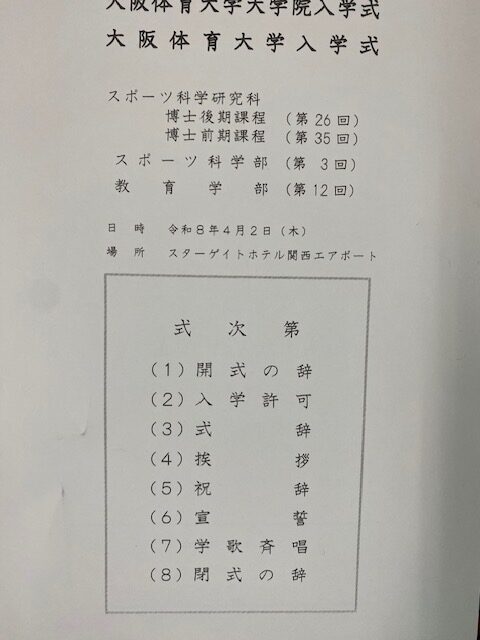 大阪体育大学大学院入学式
大阪体育大学入学式
スポーツ科学研究科
博士後期課程 (第26回)
博士前期課程 (第35回)
スポーツ科学部 (第 3回)
教育学部 (第12回)
日時 令和8年4月2日(木)
場所 スターゲイトホテル関西エアポート
式次第
(1)開式の辞
(2)入学許可
(3)式辞
(4)挨拶
(5)祝辞
(6)宣誓
(7)学歌斉唱
(8)閉式の辞